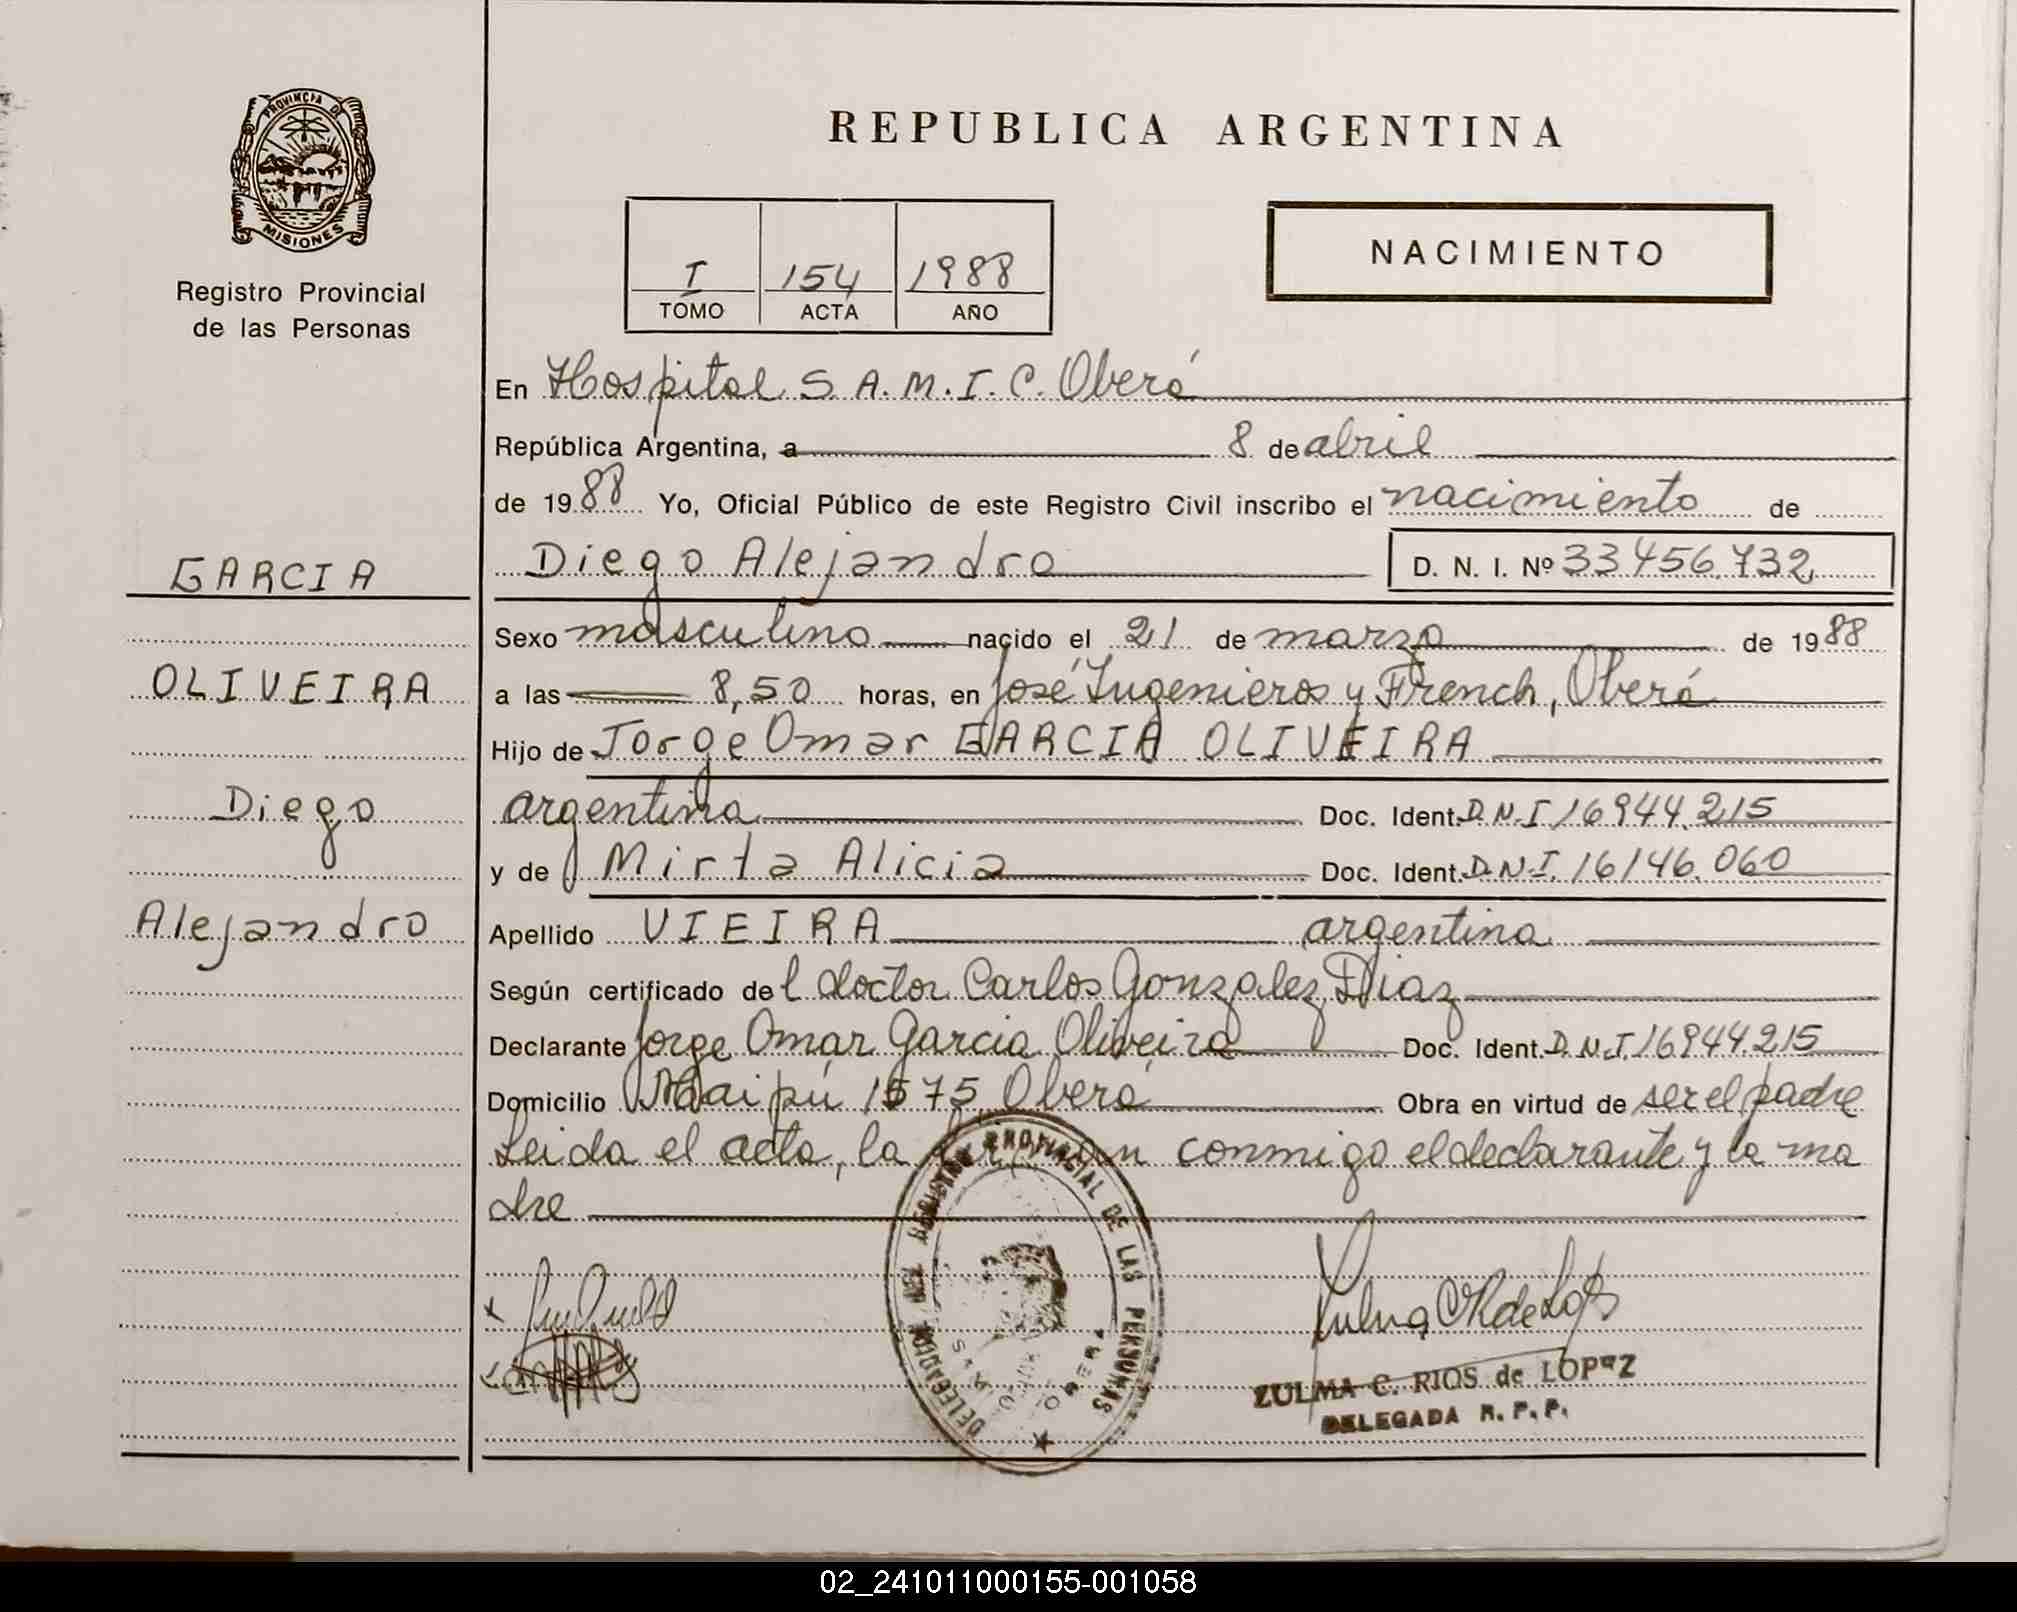 PROVINCIA DE
MISIONES
Registro Provincial
de las Personas
GARCIA
OLIVEIRA
Diego
Alejandro
REPUBLICA ARGENTINA
I 154 1988
TOMO ACTA AÑO
NACIMIENTO
En Hospital S.A.M.I.C. Oberá
República Argentina, a 8 de abril
de 1988 Yo, Oficial Público de este Registro Civil inscribo el nacimiento de
Diego Alejandro D. N. I. Nº 33456.732
Sexo masculino nacido el 21 de marzo de 1988
a las 8,50 horas, en José Ingenieros y French, Oberá
Hijo de Jorge Omar GARCIA OLIVEIRA
argentina Doc. Ident. D.N.I 16944.215
y de Mirta Alicia Doc. Ident. D.N.I. 16146.060
Apellido VIEIRA argentina
Según certificado del doctor Carlos Gonzalez Diaz
Declarante Jorge Omar Garcia Oliveira Doc. Ident. D.N.I. 16944.215
Domicilio Maipú 1575 Oberá Obra en virtud de ser el padre
Leida el acta, la conmigo el declarante y la ma
dre
DELEGACION DEL REGISTRO PROVINCIAL DE LAS PERSONAS
ZULMA C. RIOS de LOPEZ
DELEGADA R. P. P.
02_241011000155-001058